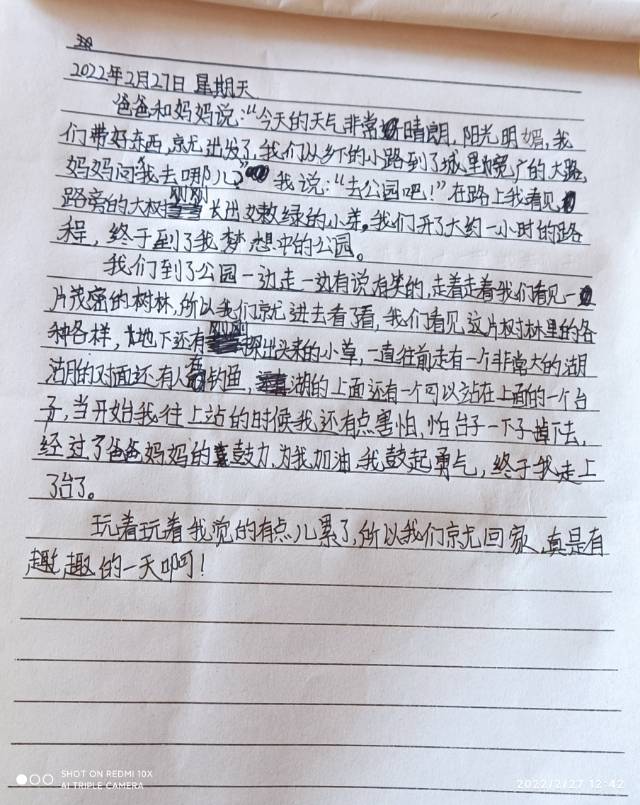 2022年2月27日 星期天
爸爸和妈妈说:“今天的天气非常晴朗,阳光明媚,我
们带好东西,就出发了,我们从乡下的小路到了城里宽广的大路
妈妈问“我去哪儿?” 我说:“去公园吧!”在路上我看见
路旁的大树刚刚长出嫩绿的小芽。我们开了大约一小时的路
程,终于到了我梦想中的公园。
我们到了公园一边走一边有说有笑的,走着走着我们看见一
片茂密的树林,所以我们就进去看看,我们看见这片树林里的各
种各样,地下还有刚刚探出头来的小草,一直往前走有一个非常大的湖
湖的对面还有人在钓鱼,湖的上面还有一个可以站在上面的一个台
子,当开始我往上站的时候我还有点害怕,怕台子一下子掉下去,
经过了爸爸妈妈的鼓力,为我加油,我鼓起勇气,终于我走上
了台了。
玩着玩着我觉的有点儿累了,所以我们就回家,真是有
趣的一天啊!
SHOT ON REDMI 10X
AI TRIPLE CAMERA
2022/2/27 12:42